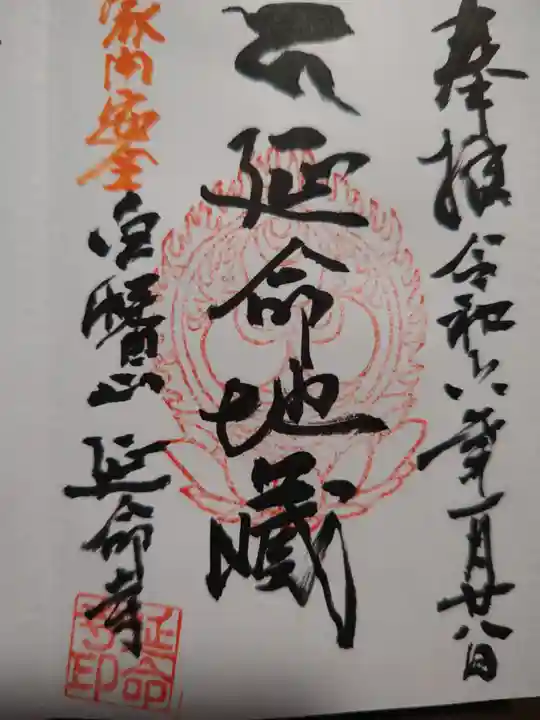 奉拝 令和六年一月廿八日
延命地蔵
家内安全
宝寶山 延命寺
延命寺印